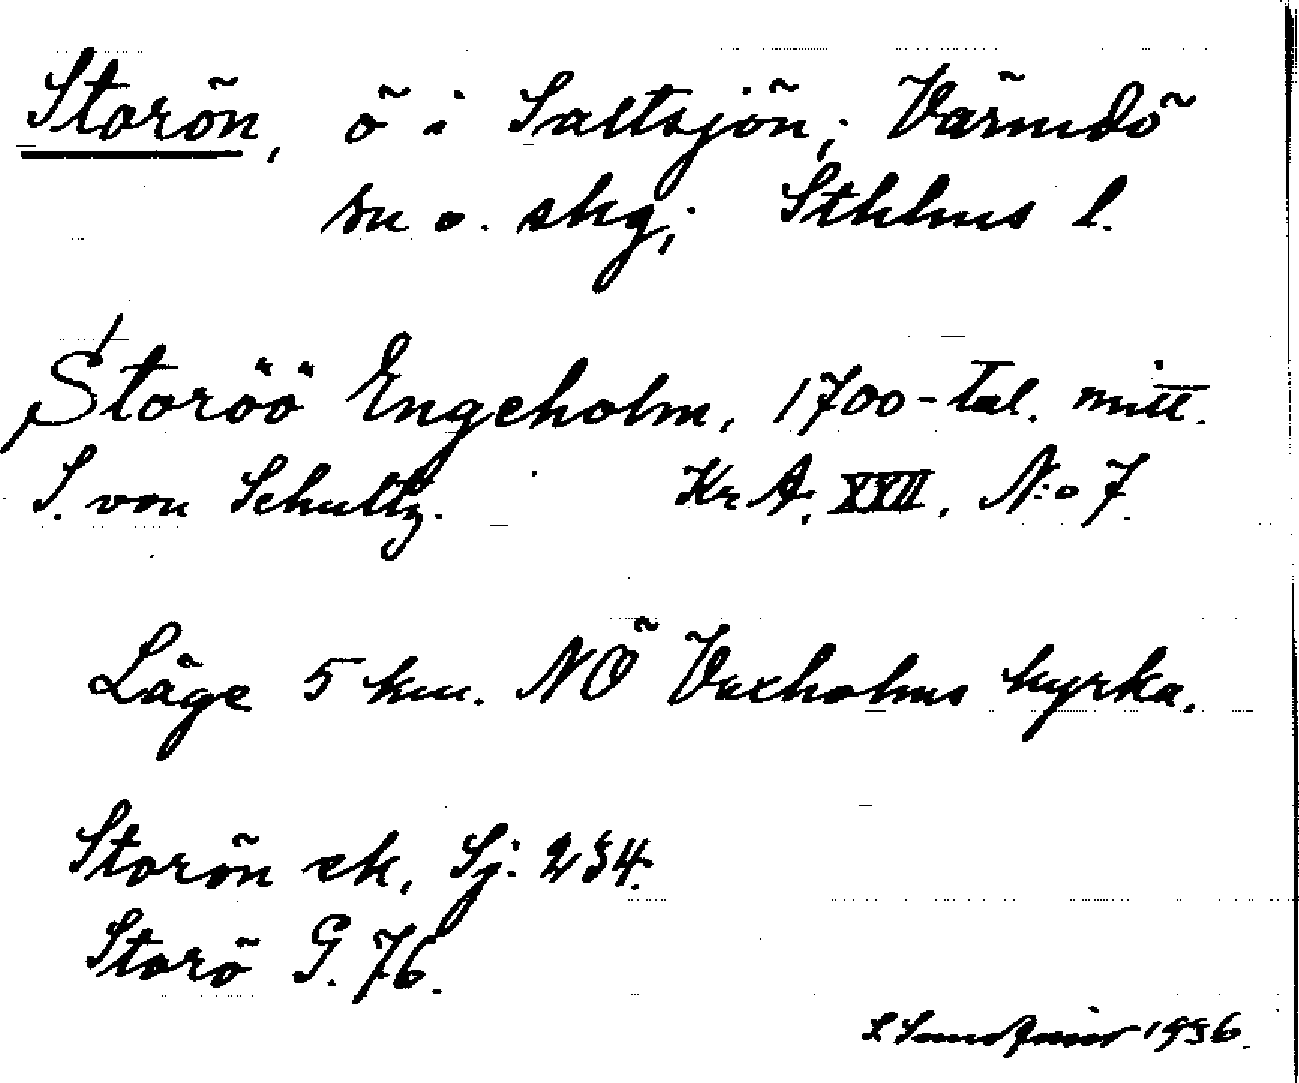 Storön, ö i Saltsjön; Värmdö
sn o. skg; Sthlms l.
Storöö Engeholm, 1700-tal. mitt.
S. von Schultz. Kr A. XXII. N:o 7.
Läge 5 km. NÖ Vaxholms kyrka.
Storön ek. Sj. 234.
Storö G. 76.
1936.